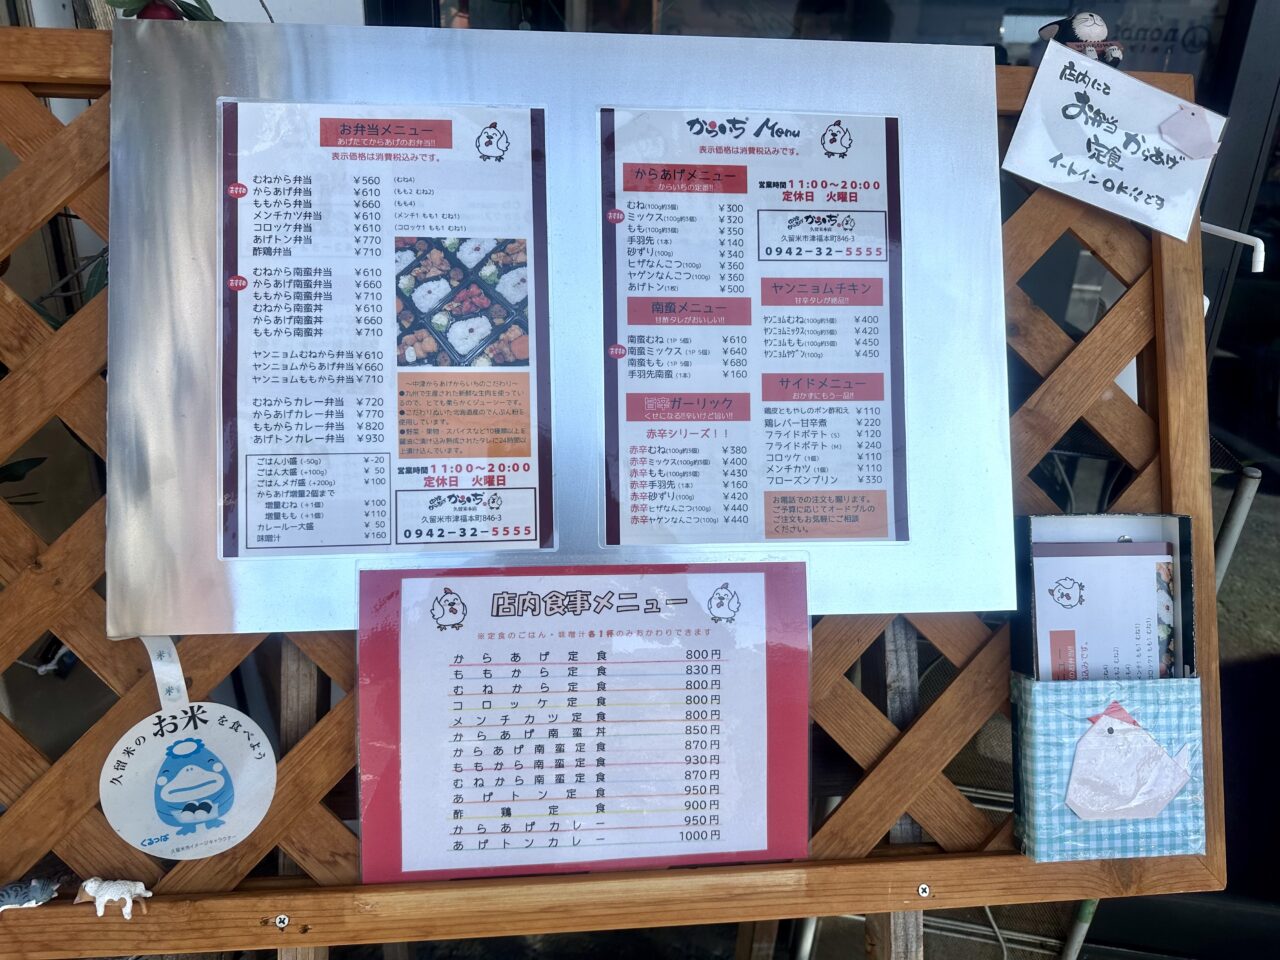 お弁当メニュー
あげたてからあげのお弁当!!
表示価格は消費税込みです。
むねから弁当 ¥560 (むね4)
おすすめ からあげ弁当 ¥610 (もも2 むね2)
ももから弁当 ¥660 (もも4)
メンチカツ弁当 ¥610 (メンチ1 もも1 むね1)
コロッケ弁当 ¥610 (コロッケ1 もも1 むね1)
あげトン弁当 ¥770
酢鶏弁当 ¥710
むねから南蛮弁当 ¥610
おすすめ からあげ南蛮弁当 ¥660
ももから南蛮弁当 ¥710
むねから南蛮丼 ¥610
からあげ南蛮丼 ¥660
ももから南蛮丼 ¥710
ヤンニョムむねから弁当 ¥610
ヤンニョムからあげ弁当 ¥660
ヤンニョムももから弁当 ¥710
むねからカレー弁当 ¥720
からあげカレー弁当 ¥770
ももからカレー弁当 ¥820
あげトンカレー弁当 ¥930
ごはん小盛(-50g) ¥-20
ごはん大盛(+100g) ¥50
ごはんメガ盛(+200g) ¥100
からあげ増量2個まで
増量むね(+1個) ¥100
増量もも(+1個) ¥110
カレールー大盛 ¥50
味噌汁 ¥160
～中津からあげからいちのこだわり～
●九州で生産された新鮮な生肉を使っているので、とても柔らかくジューシーです。
●こだわりぬいた北海道産のでんぷん粉を使用しています。
●野菜・果物・スパイスなど10種類以上を醤油に漬け込み熟成されたタレに24時間以上漬け込んでいます。
営業時間 11:00～20:00
定休日 火曜日
からいち
久留米本店
久留米市津福本町846-3
0942-32-5555
からいち Menu
表示価格は消費税込みです。
からあげメニュー
からいちの定番!!
むね(100g約3個) ¥300
おすすめ ミックス(100g約3個) ¥320
もも(100g約3個) ¥350
手羽先(1本) ¥140
砂ずり(100g) ¥340
ヒザなんこつ(100g) ¥360
ヤゲンなんこつ(100g) ¥360
あげトン(1枚) ¥500
南蛮メニュー
甘酢タレがおいしい!!
南蛮むね(1P 5個) ¥610
おすすめ 南蛮ミックス(1P 5個) ¥640
南蛮もも(1P 5個) ¥680
手羽先南蛮(1本) ¥160
旨辛ガーリック
くせになる!!辛いけど旨い!!
赤辛シリーズ！！
赤辛むね(100g約3個) ¥380
赤辛ミックス(100g約3個) ¥400
赤辛もも(100g約3個) ¥430
赤辛手羽先(1本) ¥160
赤辛砂ずり(100g) ¥420
赤辛ヒザなんこつ(100g) ¥440
赤辛ヤゲンなんこつ(100g) ¥440
営業時間 11:00～20:00
定休日 火曜日
からいち
久留米本店
久留米市津福本町846-3
0942-32-5555
ヤンニョムチキン
甘辛タレが絶品!!
ヤンニョムむね(100g約3個) ¥400
ヤンニョムミックス(100g約3個) ¥420
ヤンニョムもも(100g約3個) ¥450
ヤンニョムヤゲン(100g) ¥450
サイドメニュー
おかずにもう一品!!
鶏皮ともやしのポン酢和え ¥110
鶏レバー甘辛煮 ¥220
フライドポテト(S) ¥120
フライドポテト(M) ¥240
コロッケ(1個) ¥110
メンチカツ(1個) ¥110
フローズンプリン ¥330
お電話での注文も賜ります。
ご予算に応じてオードブルの
ご注文もお気軽にご相談
ください。
店内にて
お弁当
定食 からあげ
イートインOK!!です
店内食事メニュー
※定食のごはん・味噌汁各1杯のみおかわりできます
からあげ定食 800円
ももから定食 830円
むねから定食 800円
コロッケ定食 800円
メンチカツ定食 800円
からあげ南蛮丼 850円
からあげ南蛮定食 870円
ももから南蛮定食 930円
むねから南蛮定食 870円
あげトン定食 950円
酢鶏定食 900円
からあげカレー 950円
あげトンカレー 1000円
米
米
久留米のお米を食べよう
くるっぱ
久留米市イメージキャラクター